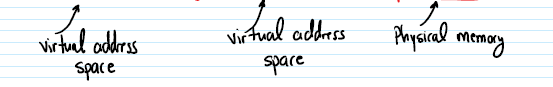 virtual address
space
virtual address
space
Physical memory